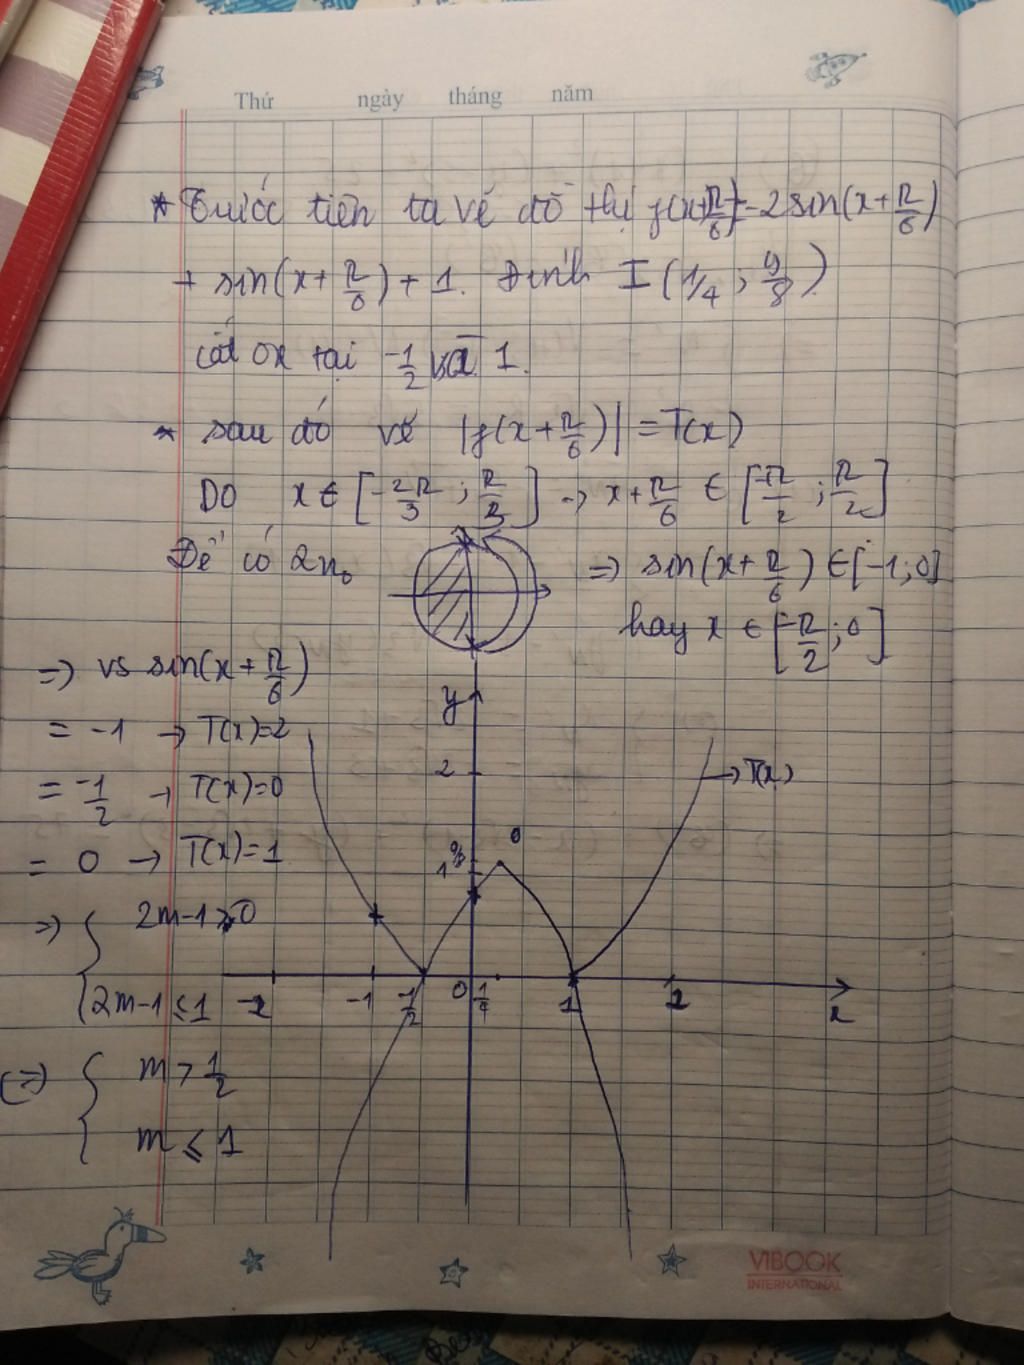 Thứ ngày tháng năm
* Trước tiên ta vẽ đồ thị y(x+π/6)=2sin(x+π/6)
+ sin(x+π/6)+1. Đỉnh I(1/4; 9/8)
cắt Ox tại -1/2 và 1.
* sau đó vẽ |y(x+π/6)|=T(x)
Do x ∈ [-2π/3; π/3] → x+π/6 ∈ [-π/2; π/2]
Để có 2n₀ => sin(x+π/6) ∈ [-1;0]
hay x ∈ [-π/2; 0]
=> vs sin(x+π/6)
= -1 → T(x)=2
= -1/2 → T(x)=0
= 0 → T(x)=1
=> { 2m-1>0
2m-1≤1
(=> { m > 1/2
m ≤ 1
y
2
→T(x)
9/8
1
-2 -1 -1/2 0 1/4 1 2 x
VIBOOK
INTERNATIONAL